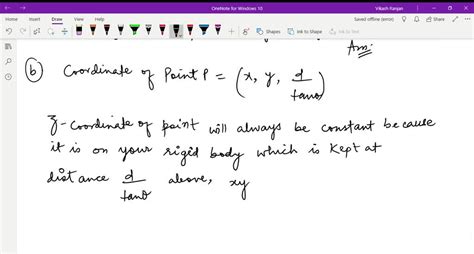 OneNote for Windows 10
Vikash Ranjan
Home Insert Draw View Help
Saved offline (error) Share
Shapes Ink to Shape Ink to Text
Ans:
(b) Coordinate of Point P = (x, y, d/tanθ)
z-coordinate of point will always be constant because
it is on your rigid body which is kept at
distance d/tanθ above, xy